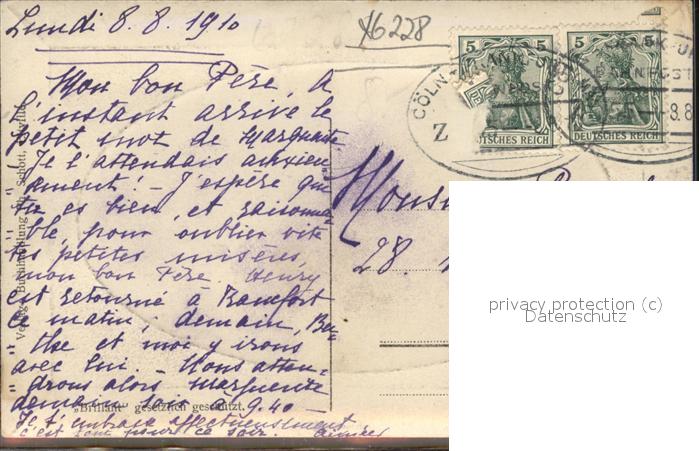 Lundi 8.8.1910
X6228
Mon bon Père, A
l'instant arrive le
petit mot de Marguerite
Je l'attendais anxieu
sement! - J'espère que
tu es bien, et raisonna-
ble, pour oublier vite
tes petites misères,
mon bon Père. Henry
est retourné à Francfort
ce matin; demain, Ber-
the et moi y irons
avec lui. - Nous atten-
drons alors Marguerite
demain soir à 9.40 -
Je t'embrasse affectueusement
c'est tout pour ce soir.
"Brillant" gesetzlich geschützt.
Verlag: Buchhandlung Schött,
5 5
DEUTSCHES REICH
5 5
DEUTSCHES REICH
CÖLN
Z
BAHNPOST
8.8
28.
privacy protection (c)
Datenschutz